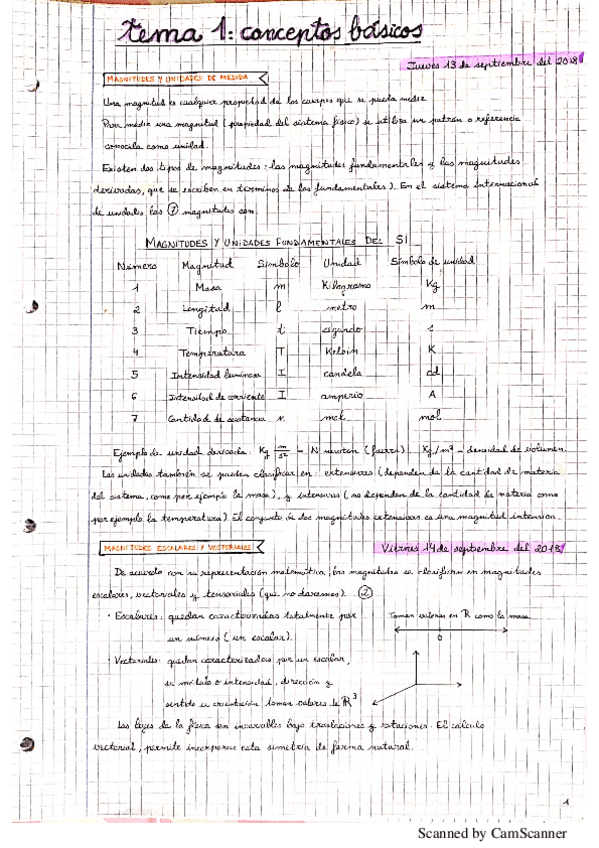 tema 1: conceptos básicos
Jueves 13 de septiembre del 2018
MAGNITUDES Y UNIDADES DE MEDIDA
Una magnitud es cualquier propiedad de los cuerpos que se pueda medir.
Para medir una magnitud (propiedad del sistema físico) se utiliza un patrón o referencia
conocida como unidad.
Existen dos tipos de magnitudes: las magnitudes fundamentales y las magnitudes
derivadas, que se escriben en términos de las fundamentales). En el sistema internacional
de unidades las 7 magnitudes son:
MAGNITUDES Y UNIDADES FUNDAMENTALES DEL SI
Número Magnitud Símbolo Unidad Símbolo de unidad
1 Masa m Kilogramo Kg
2 Longitud l metro m
3 Tiempo t segundo s
4 Temperatura T Kelvin K
5 Intensidad luminosa I candela cd
6 Intensidad de corriente I amperio A
7 Cantidad de sustancia n mol mol
Ejemplo de unidad derivada: Kg m/s² - N newton (fuerza) Kg/m³ - densidad de volumen.
Las unidades también se pueden clasificar en: extensivas (dependen de la cantidad de materia
del sistema, como por ejemplo la masa), y intensivas (no dependen de la cantidad de materia como
por ejemplo la temperatura) El conjunto de dos magnitudes extensivas es una magnitud intensiva.
MAGNITUDES ESCALARES Y VECTORIALES
Viernes 14 de septiembre del 2018
De acuerdo con su representación matemática, las magnitudes se clasifican en magnitudes
escalares, vectoriales y tensoriales (que no daremos). 2
· Escalares: quedan caracterizadas totalmente por
un número (un escalar).
Toman valores en ℝ como la masa
0
· Vectoriales: quedan caracterizadas por un escalar,
su módulo o intensidad, dirección y
sentido u orientación toman valores de ℝ³
Las leyes de la física son invariables bajo traslaciones y rotaciones. El cálculo
vectorial, permite incorporar esta simetría de forma natural.
1
Scanned by CamScanner